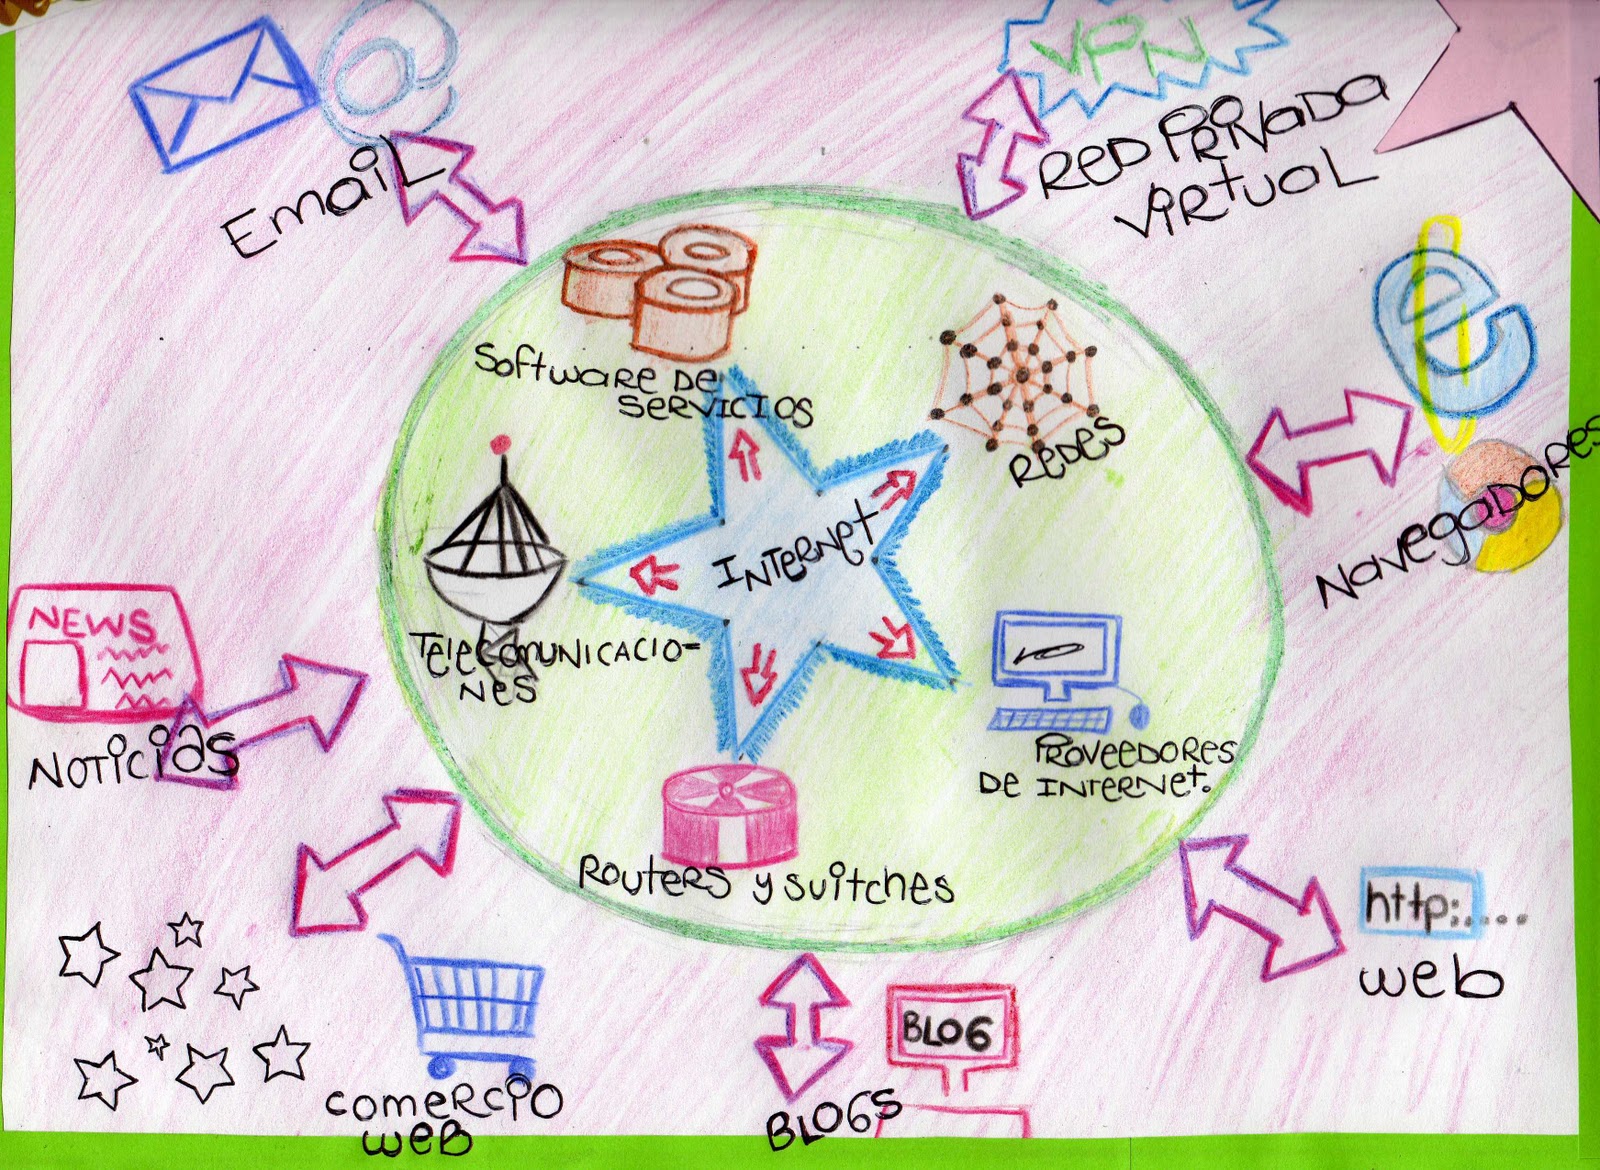 @
VPN
Email
RED PRIVADA
VIRTUAL
Software de
servicios
Redes
e
Internet
Navegadores
Telecomunicacio-
nes
NEWS
Noticias
Proveedores
de internet.
Routers y suitches
http:....
web
BLOG
comercio
web
BLOGS